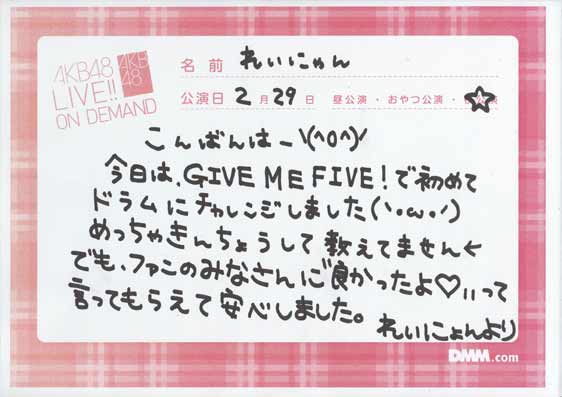 AKB48
LIVE!!
ON DEMAND
AKB
48
名前 れいにゃん
公演日 2月29日 昼公演・おやつ公演・☆公演
こんばんはー\(^O^)/
今日は、GIVE ME FIVE!で初めて
ドラムにチャレンジしました(`・ω・´)
めっちゃきんちょうして教えてません←
でも、ファンのみなさんに"良かったよ♡"って
言ってもらえて安心しました。
れいにょんより
DMM.com